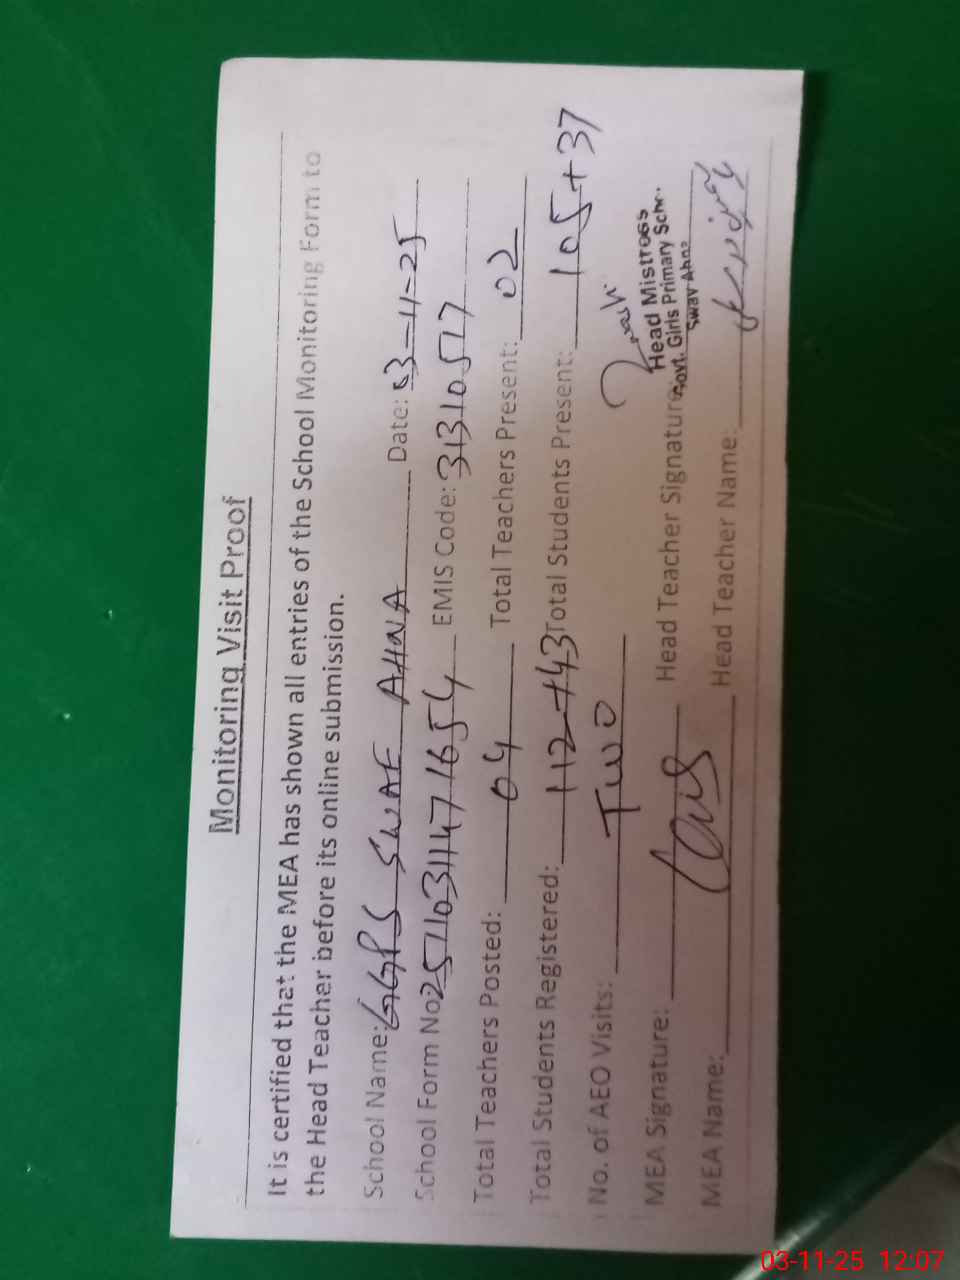 Monitoring Visit Proof
It is certified that the MEA has shown all entries of the School Monitoring Form to
the Head Teacher before its online submission.
School Name: GGPS SWAE AHNA Date: 03-11-25
School Form No 2511031147 1654 EMIS Code: 31310517
Total Teachers Posted: 04 Total Teachers Present: 02
Total Students Registered: 112+43 Total Students Present: 105+37
No. of AEO Visits: Two
Head Mistress
Govt. Girls Primary
MEA Signature: Head Teacher Signature:
MEA Name: Head Teacher Name:
03-11-25 12:07